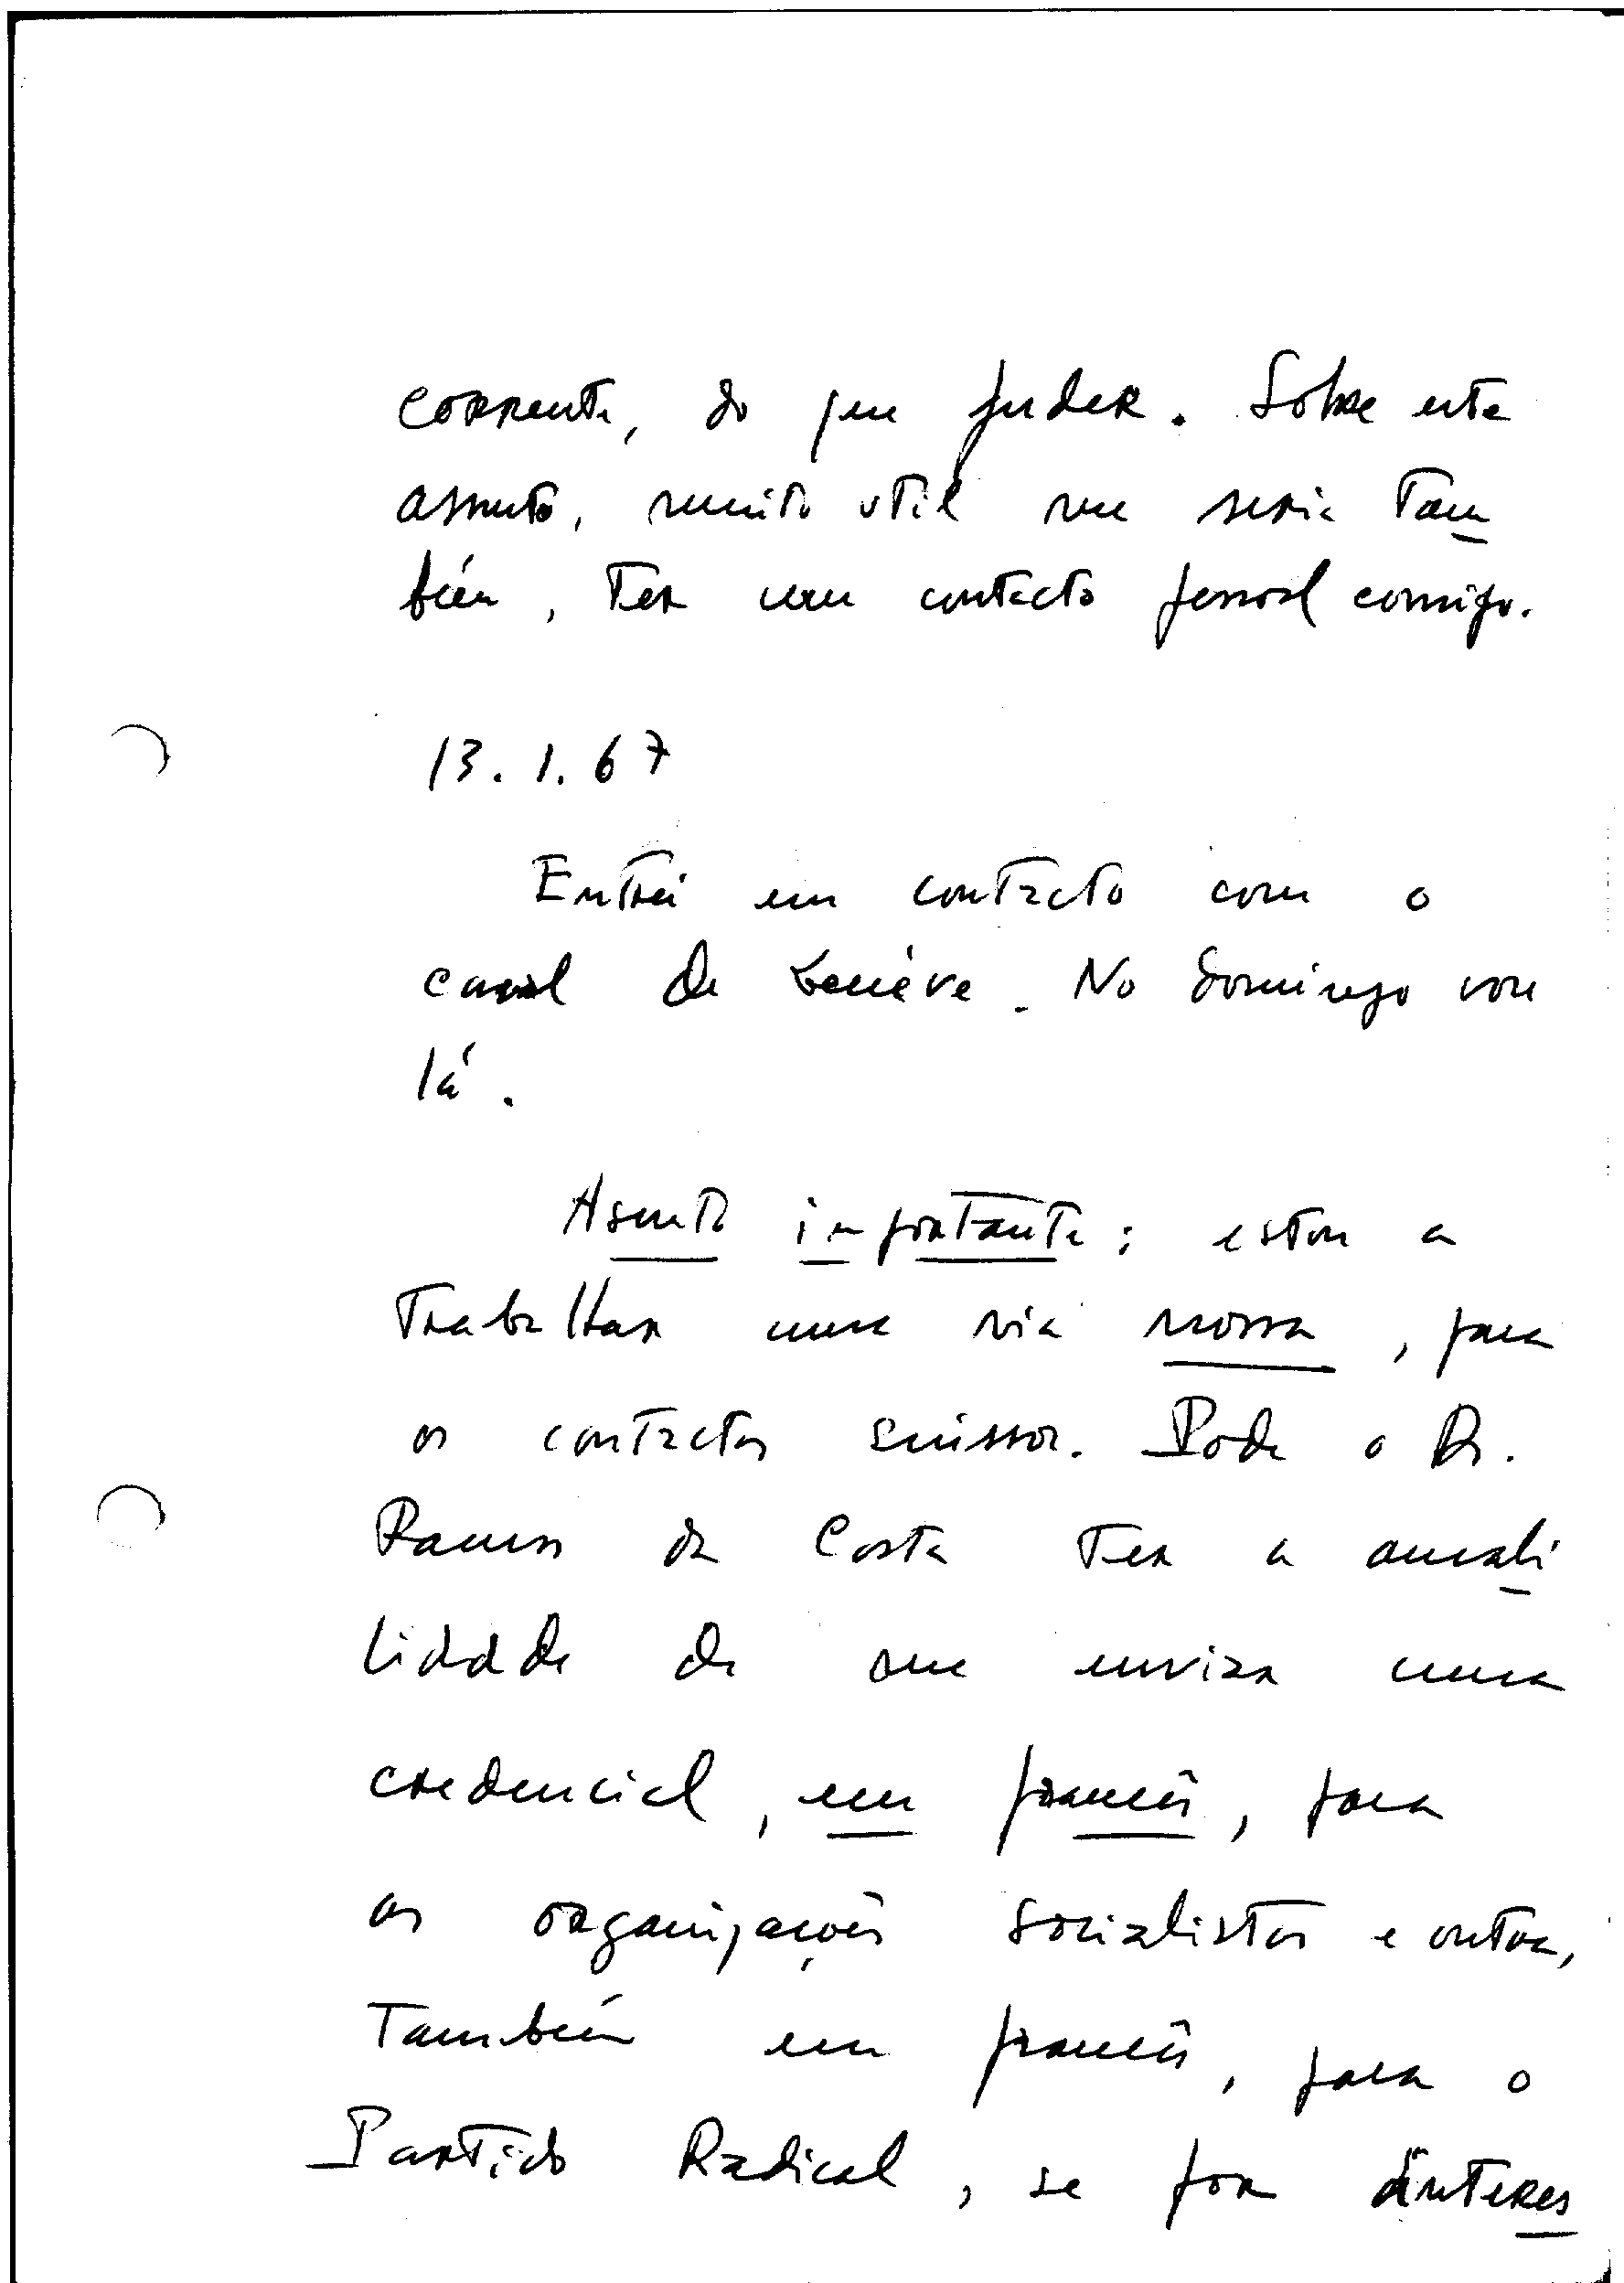 corrente, do que puder. Sobre este
assunto, muito util me seria tam
bém, ter um contacto pessoal consigo.
13.1.67
Entrei em contacto com o
casal de Genève. No domingo vou
lá.
Assunto importante: estou a
trabalhar numa via nossa, para
os contactos suissos. Pode o Dr.
Ramos da Costa ter a amabi
lidade de me enviar uma
credencial, em francês, para
as organizações socialistas e outra,
também em francês, para o
Partido Radical, se for interes